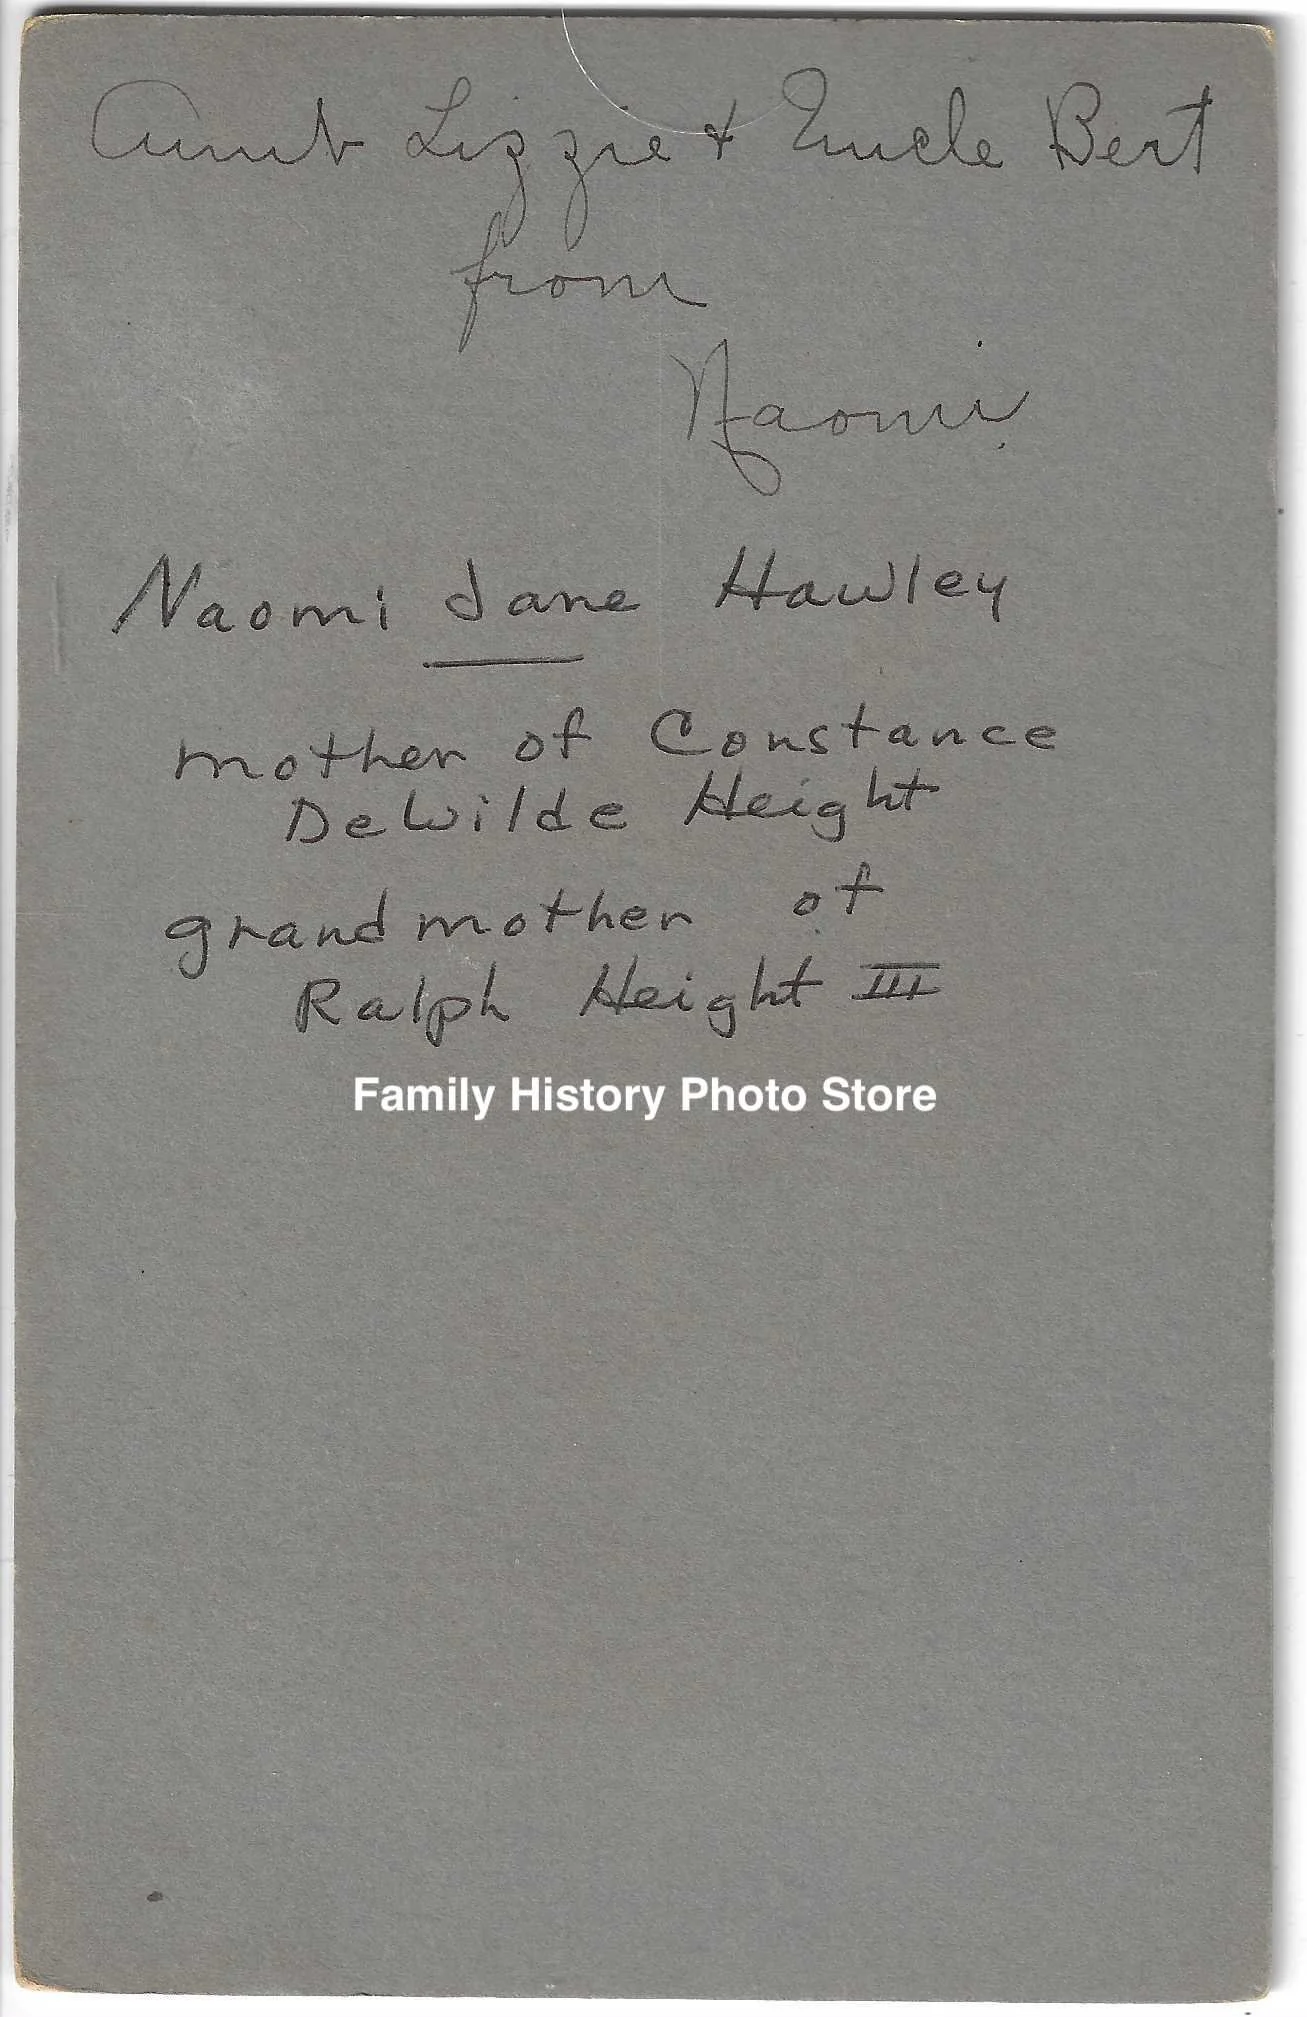 Aunt Lizzie & Uncle Bert
from
Naomi
Naomi Jane Hawley
mother of Constance
DeWilde Height
grandmother of
Ralph Height III
Family History Photo Store